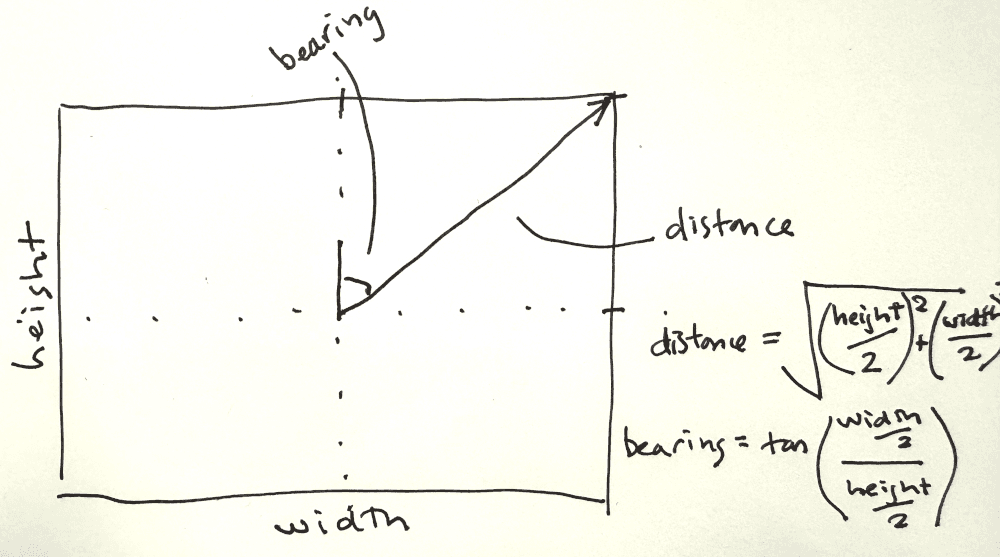 bearing
distance
height
distance = √((height/2)² + (width/2)
bearing = tan((width/2)/(height/2))
width